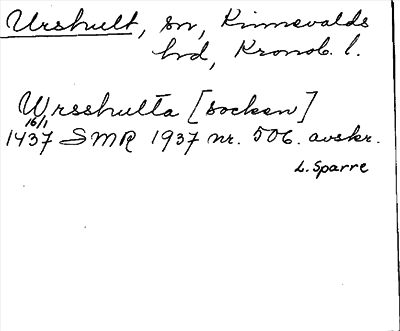 Urshult, sn, Kinnevalds
hd, Kronob. l.
Wrsshulta [socken]
16/1
1437 SMR 1937 nr. 506. avskr.
L. Sparre